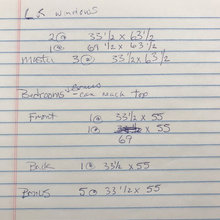 L R windows
2@ 33 1/2 x 63 1/2
1@ 69 1/2 x 63 1/2
master 3@ 33 1/2 x 63 1/2
Bedrooms + Bonus
- can match top
Front 1@ 33 1/2 x 55
1@ x 55
69
Back 1@ 33 1/2 x 55
Bonus 5@ 33 1/2 x 55